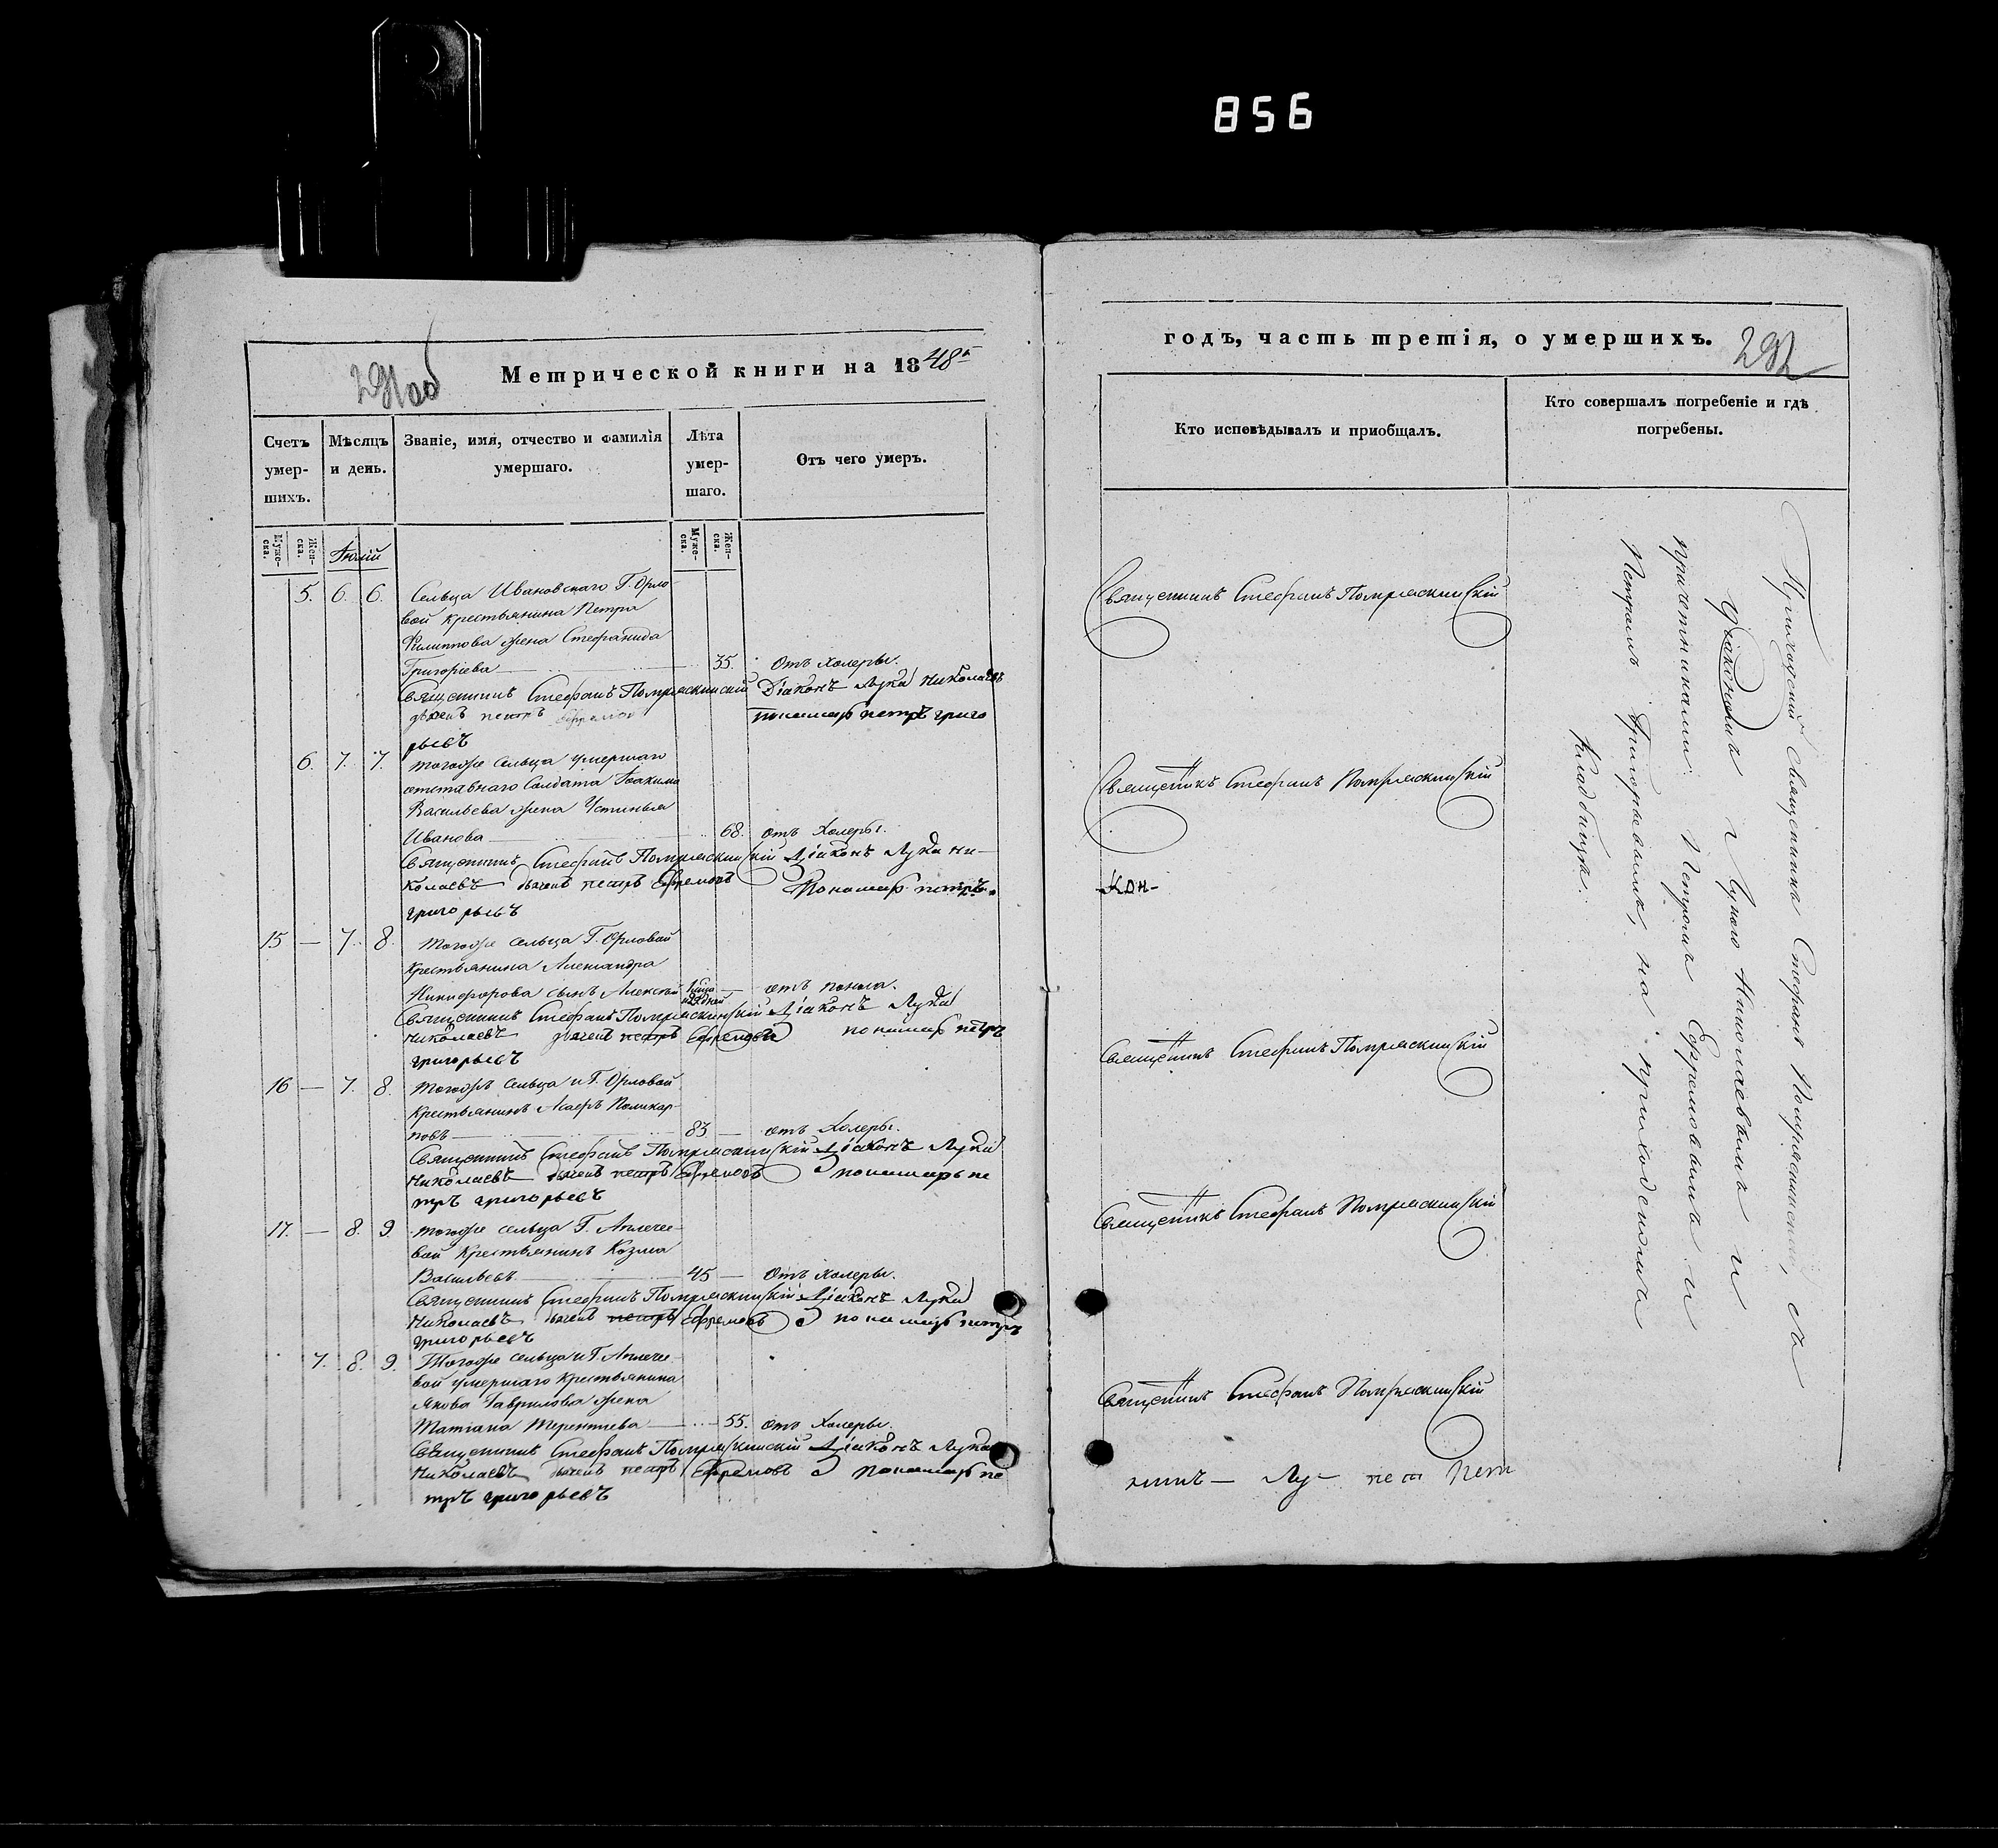 856
291 об
Метрической книги на 1848й
Счетъ умер-шихъ.
Мѣсяцъ и день.
Званіе, имя, отчество и фамилія умершаго.
Лѣта умер-шаго.
Отъ чего умеръ.
Муже-ска.
Жен-ска.
Іюлій
Муже-ска.
Жен-ска.
5. 6. 6. Сельца Ивановскаго Г. Орло-
вой крестьянина Петра
Филиппова жена Стефанида
Григорьева 35. Отъ холеры.
Священникъ Стефанъ Діаконъ Лука Николаевъ
дьячекъ петръ Ефремов пономарь петръ григо
рьевъ
6. 7. 7. тогоже сельца умершаго
отставнаго Солдата Іоакима
Васильева жена Устинья
Иванова 68. отъ холеры.
Священникъ Стефанъ Діаконъ Лука ни-
колаевъ дьячекъ петръ Ефремовъ Пономарь петръ
григорьевъ
15 — 7. 8. тогоже сельца Г. Орловой
крестьянина Александра
Никифорова сынъ Алексѣй — отъ поноса.
Священникъ Стефанъ Діаконъ Лука
Николаевъ дьячекъ петръ Ефремовъ пономарь петръ
григорьевъ
16 — 7. 8. тогожъ сельца и Г. Орловой
крестьянинъ Поликар-
повъ 83 — отъ холеры.
Священникъ Стефанъ Діаконъ Лука
Николаевъ дьячекъ петръ Ефремовъ пономарь пе
тръ григорьевъ
17. — 8. 9. тогоже сельца Г.
вой крестьянинъ Козма
Васильевъ 45 — Отъ холеры.
Священникъ Стефанъ Діаконъ Лука
Николаевъ дьячекъ петръ Ефремовъ пономарь петръ
григорьевъ
7. 8. 9. Тогоже сельца и Г.
вой умершаго крестьянина
Якова Гаврилова жена
Татіана Терентьева 55. отъ холеры.
Священникъ Стефанъ Діаконъ Лука
Николаевъ дьячекъ петръ Ефремовъ пономарь пе
тръ григорьевъ
годъ, часть третія, о умершихъ.
292
Кто исповѣдывалъ и приобщалъ.
Кто совершалъ погребеніе и гдѣ погребены.
Священникъ Стефанъ
Священникъ Стефанъ
Кон-
Священникъ Стефанъ
Священникъ Стефанъ
Священникъ Стефанъ
никъ — Лу- пет Пет
Приходскій священникъ Стефанъ съ
діакономъ Лукою Николаевымъ и
причетниками Петромъ Ефремовымъ и
Петромъ Григорьевымъ, на приходскомъ
кладбищѣ.